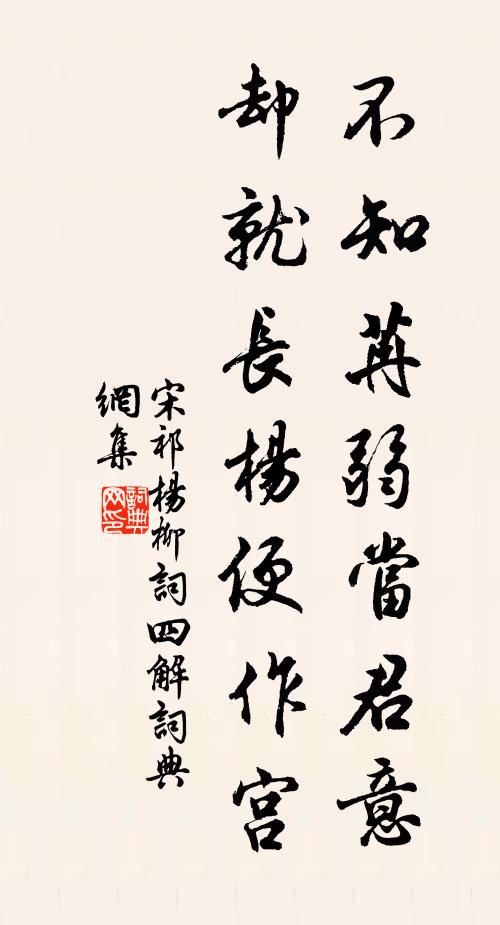 不知苒弱當君意
却就長楊便作宫
宋祁楊柳詞四解詞典
網集
詞典
网印